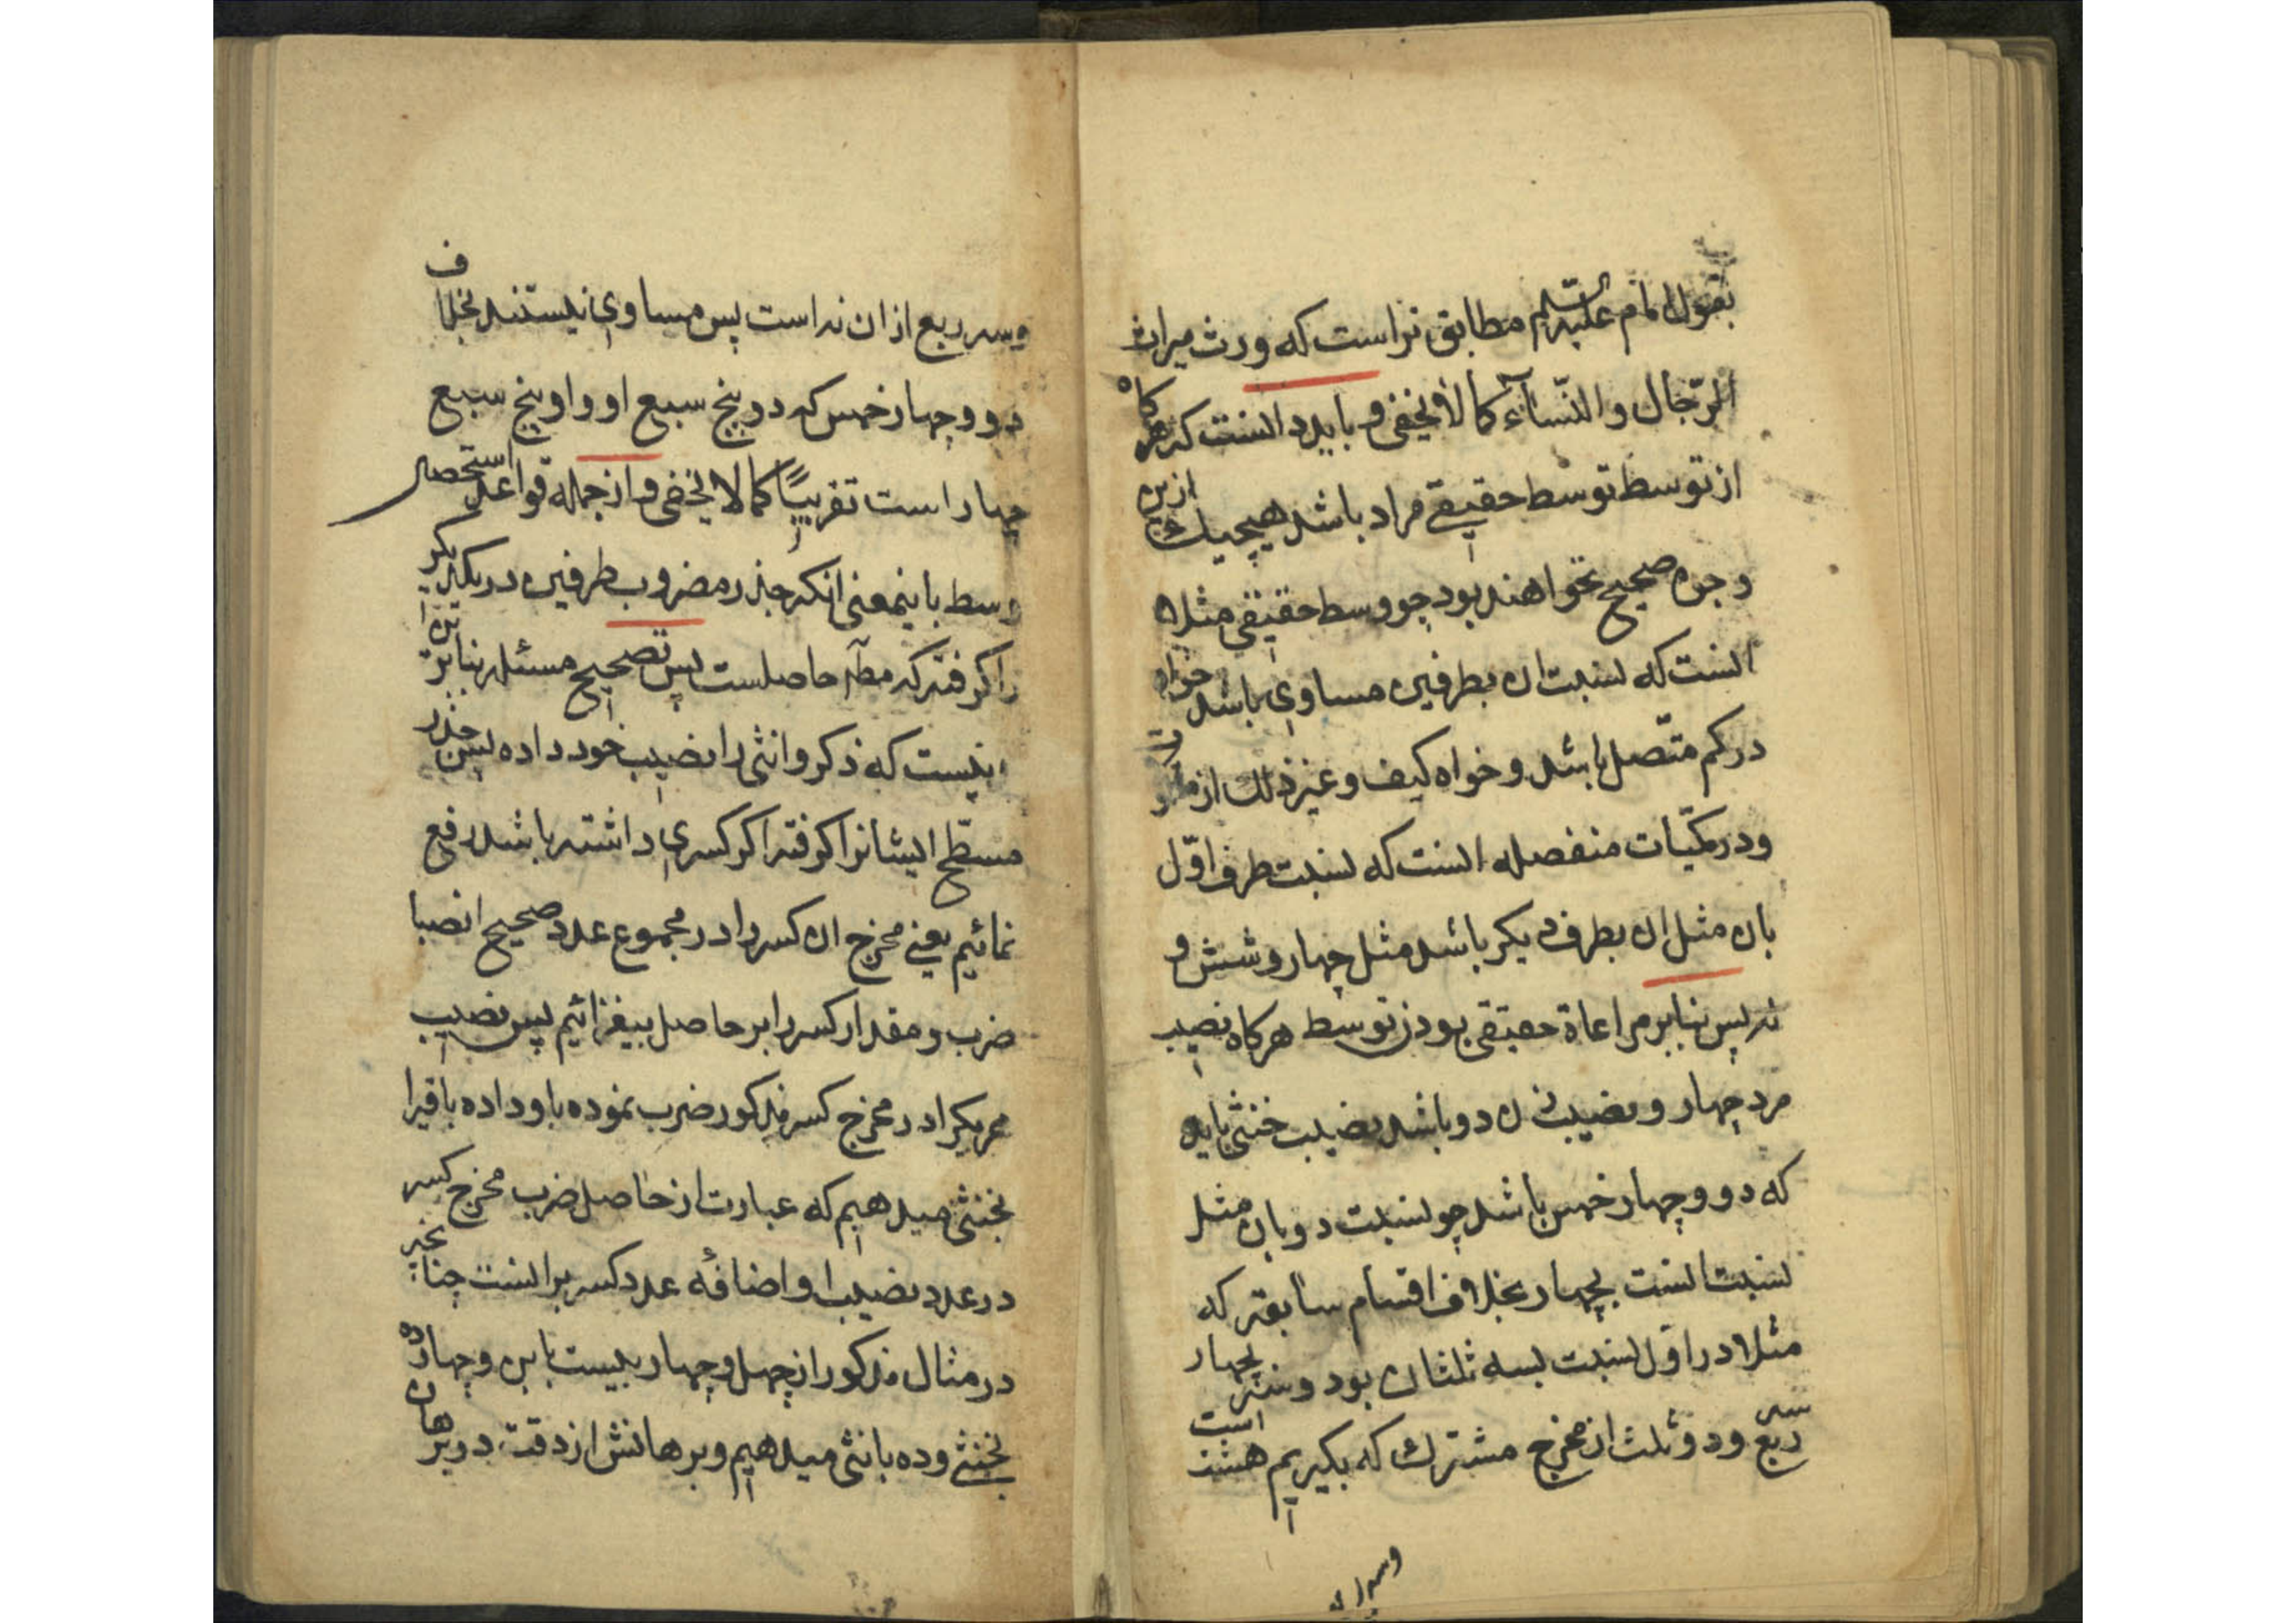 بقول امام علیه السلم مطابق تر است که ورث میراث
الرّجال والنّسآء کما لا یخفی و باید دانست که هرکاه
از توسط توسط حقیقی مراد باشد هیچیك ازین
وجوه صحیح نخواهند بود چو وسط حقیقی مثلا
انست که نسبت ان بطرفین مساوی باشد خواه
در کم متّصل باشد و خواه کیف و غیر ذلك از
ودر کمّیات منفصله انست که نسبت طرف اوّل
بان مثل ان بطرف دیکر باشد مثل چهار و شش و
نه پس بنابر مراعاة حقیقی بودن توسط هرکاه نصیب
مرد چهار و نصیب زن دو باشد نصیب خنثی باید
که دو و چهار خمس باشد چو نسبت دو بان مثل
نسبت انست بچهار بخلاف اقسام سابقه که
مثلا در اوّل نسبت بسه ثلثان بود و سه بچهار سه
ربع و دو ثلث از مخرج مشترك که بکیریم هشت است
وسه ربع از ان نه است پس مساوی نیستند بخلاف
دو و چهار خمس که دو پنج سبع او و او پنج سبع
چهار است تقریباً کما لا یخفی و از جمله قواعد استحصال
وسط باینمعنی انکه جذر مضروب طرفین در یکدیکر
را کرفته که مط حاصلست پس تصحیح مسئله بنابرین
اینست که ذکر وانثی را نصیب خود داده پس جذر
مسطّح ایشانرا کرفته اکر کسری داشته باشد رفع
نمائیم یعنی مخرج ان کسر را در مجموع عدد صحیح انصبا
ضرب و مقدار کسر را بر حاصل بیفزائیم پس نصیب
هر یکرا در مخرج کسر مذکور ضرب نموده باو داده باقیرا
بخنثی میدهیم که عبارت از حاصل ضرب مخرج کسر
در عدد نصیب او اضافهٔ عدد کسر بر انست چنانچه
در مثال مذکور از چهل و چهار بیست باین و چهارده
بخنثی وده بانثی میدهیم و برهانش از دقت در برهان